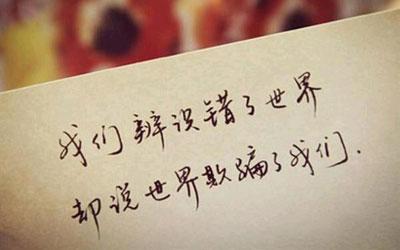 我们辨误错了世界
却说世界欺骗了我们.